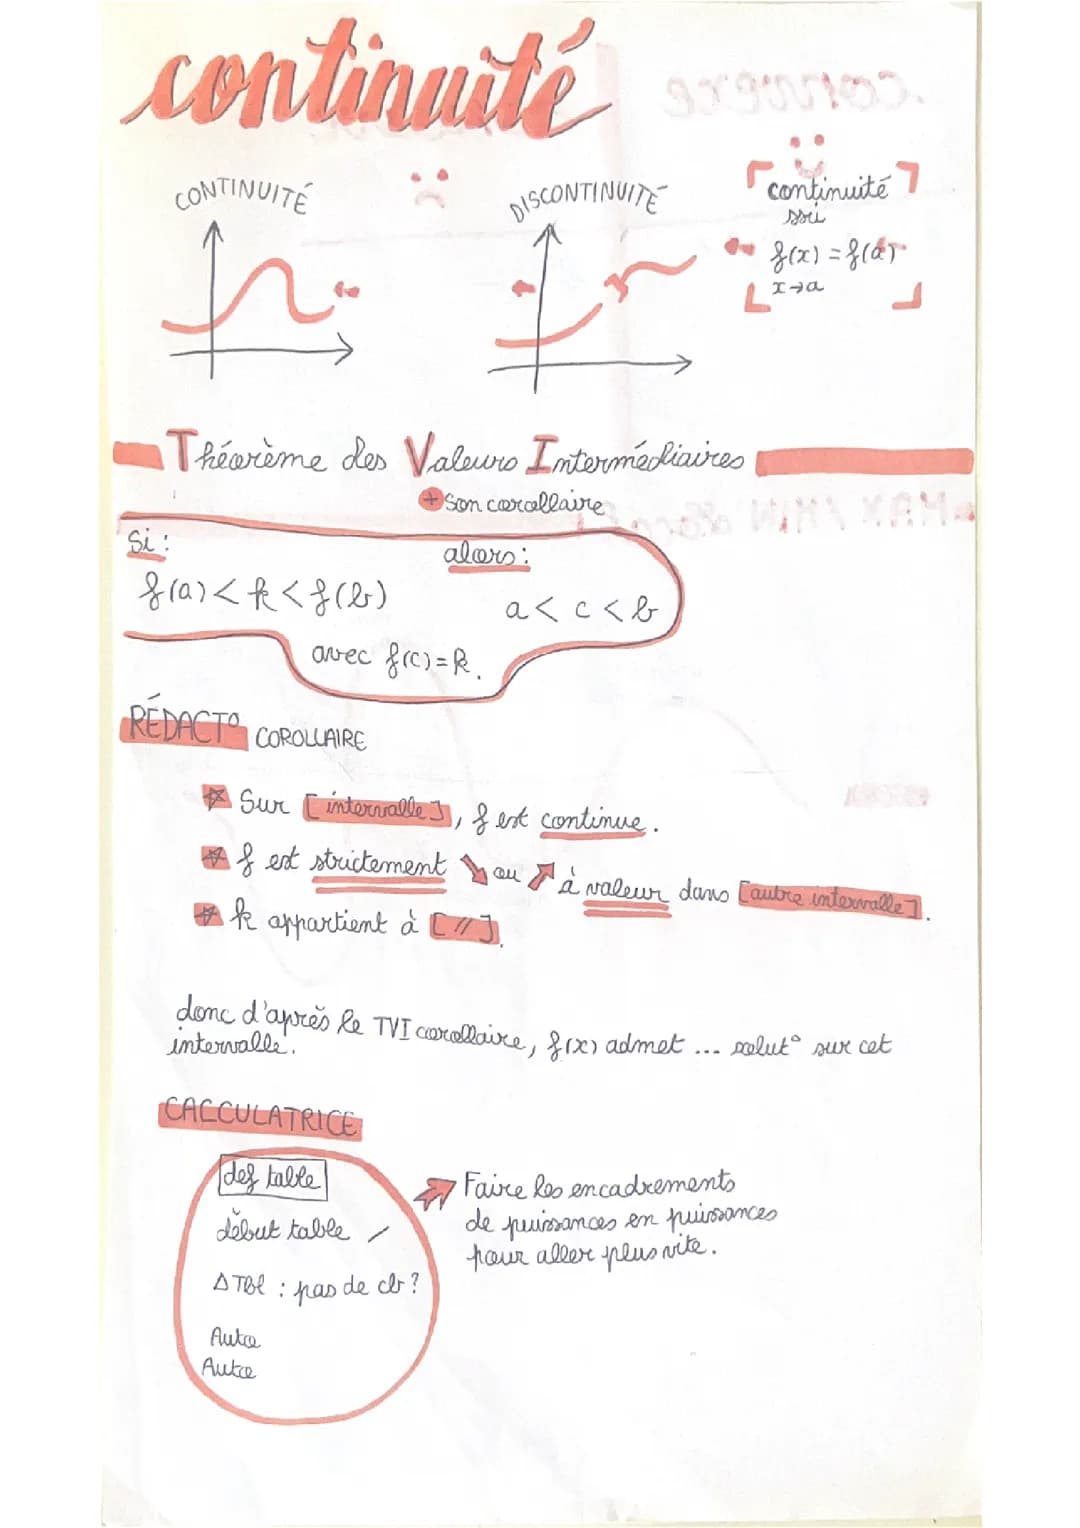 continuité
CONTINUITÉ
DISCONTINUITÉ
continuité
ssi
f(x) = f(a)
x→a
Théorème des Valeurs Intermédiaires
+ Son corollaire
Si :
alors :
f(a) < k < f(b)
a < c < b
avec f(c) = k.
RÉDACT° COROLLAIRE
Sur [intervalle], f est continue.
f est strictement ↘ ou ↗ à valeur dans [autre intervalle].
k appartient à [//].
donc d'après le TVI corollaire, f(x) admet ... solut° sur cet
intervalle.
CALCULATRICE
def table
début table /
ΔTBl : pas de cb ?
Auto
Auto
Faire les encadrements
de puissances en puissances
pour aller plus vite.